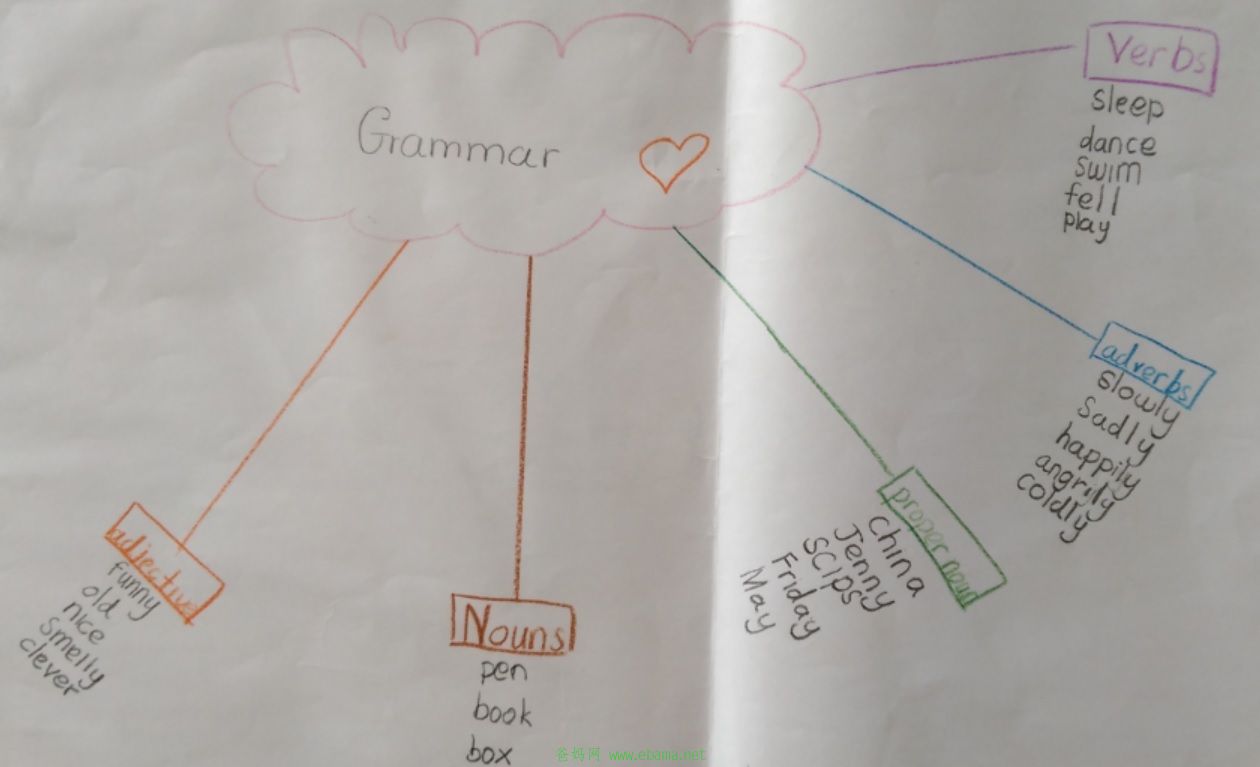 Grammar
Verbs
sleep
dance
swim
fell
play
adverbs
slowly
sadly
happily
angrily
coldly
proper noun
China
Jenny
SCIPS
Friday
May
Nouns
pen
book
box
adjective
funny
old
nice
smelly
clever
爸妈网 www.ebama.net